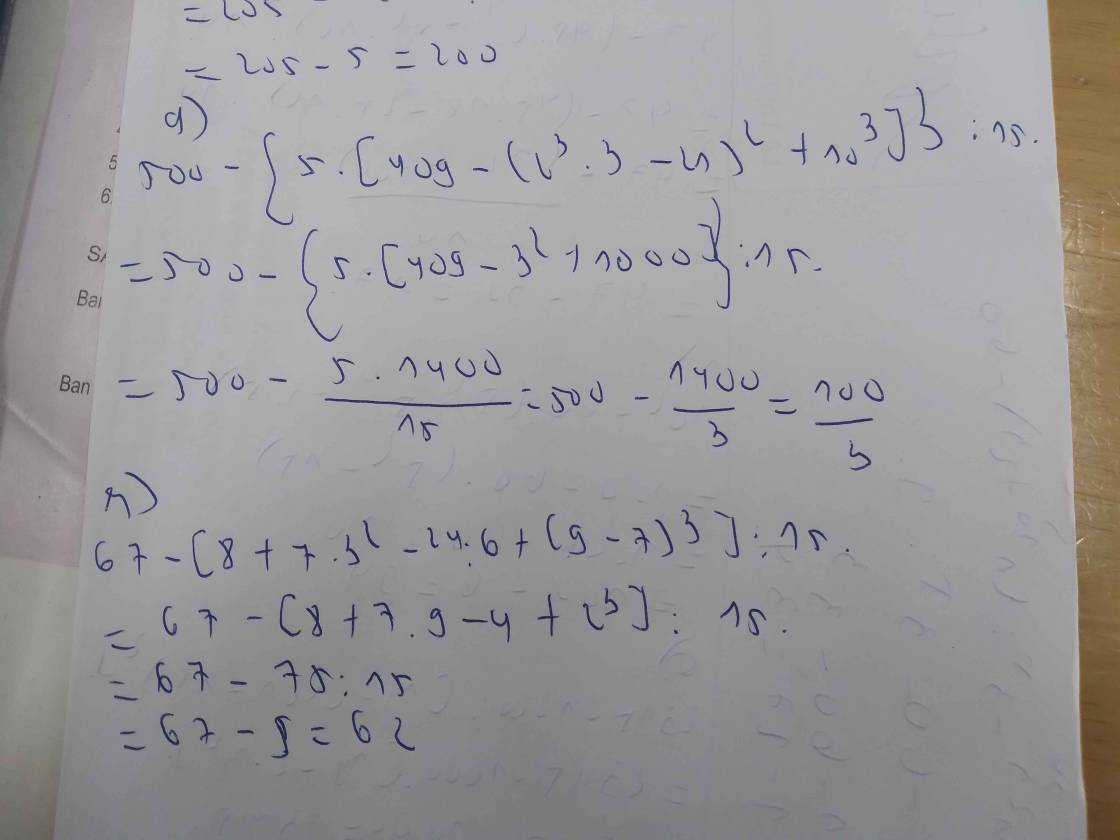 = 205 -
= 205 - 5 = 200
q)
500 - { 5 . [ 409 - ( 2³ . 3 - 21 )² + 10³ ] } : 15.
= 500 - { 5 . [ 409 - 3² + 1000 ] } : 15.
= 500 - (5 . 1400)/15 = 500 - 1400/3 = 100/3
r)
67 - [ 8 + 7 . 3² - 24 : 6 + ( 9 - 7 )³ ] : 15.
= 67 - [ 8 + 7 . 9 - 4 + 2³ ] : 15.
= 67 - 75 : 15
= 67 - 5 = 62
5
6.
SA
Bar
Ban